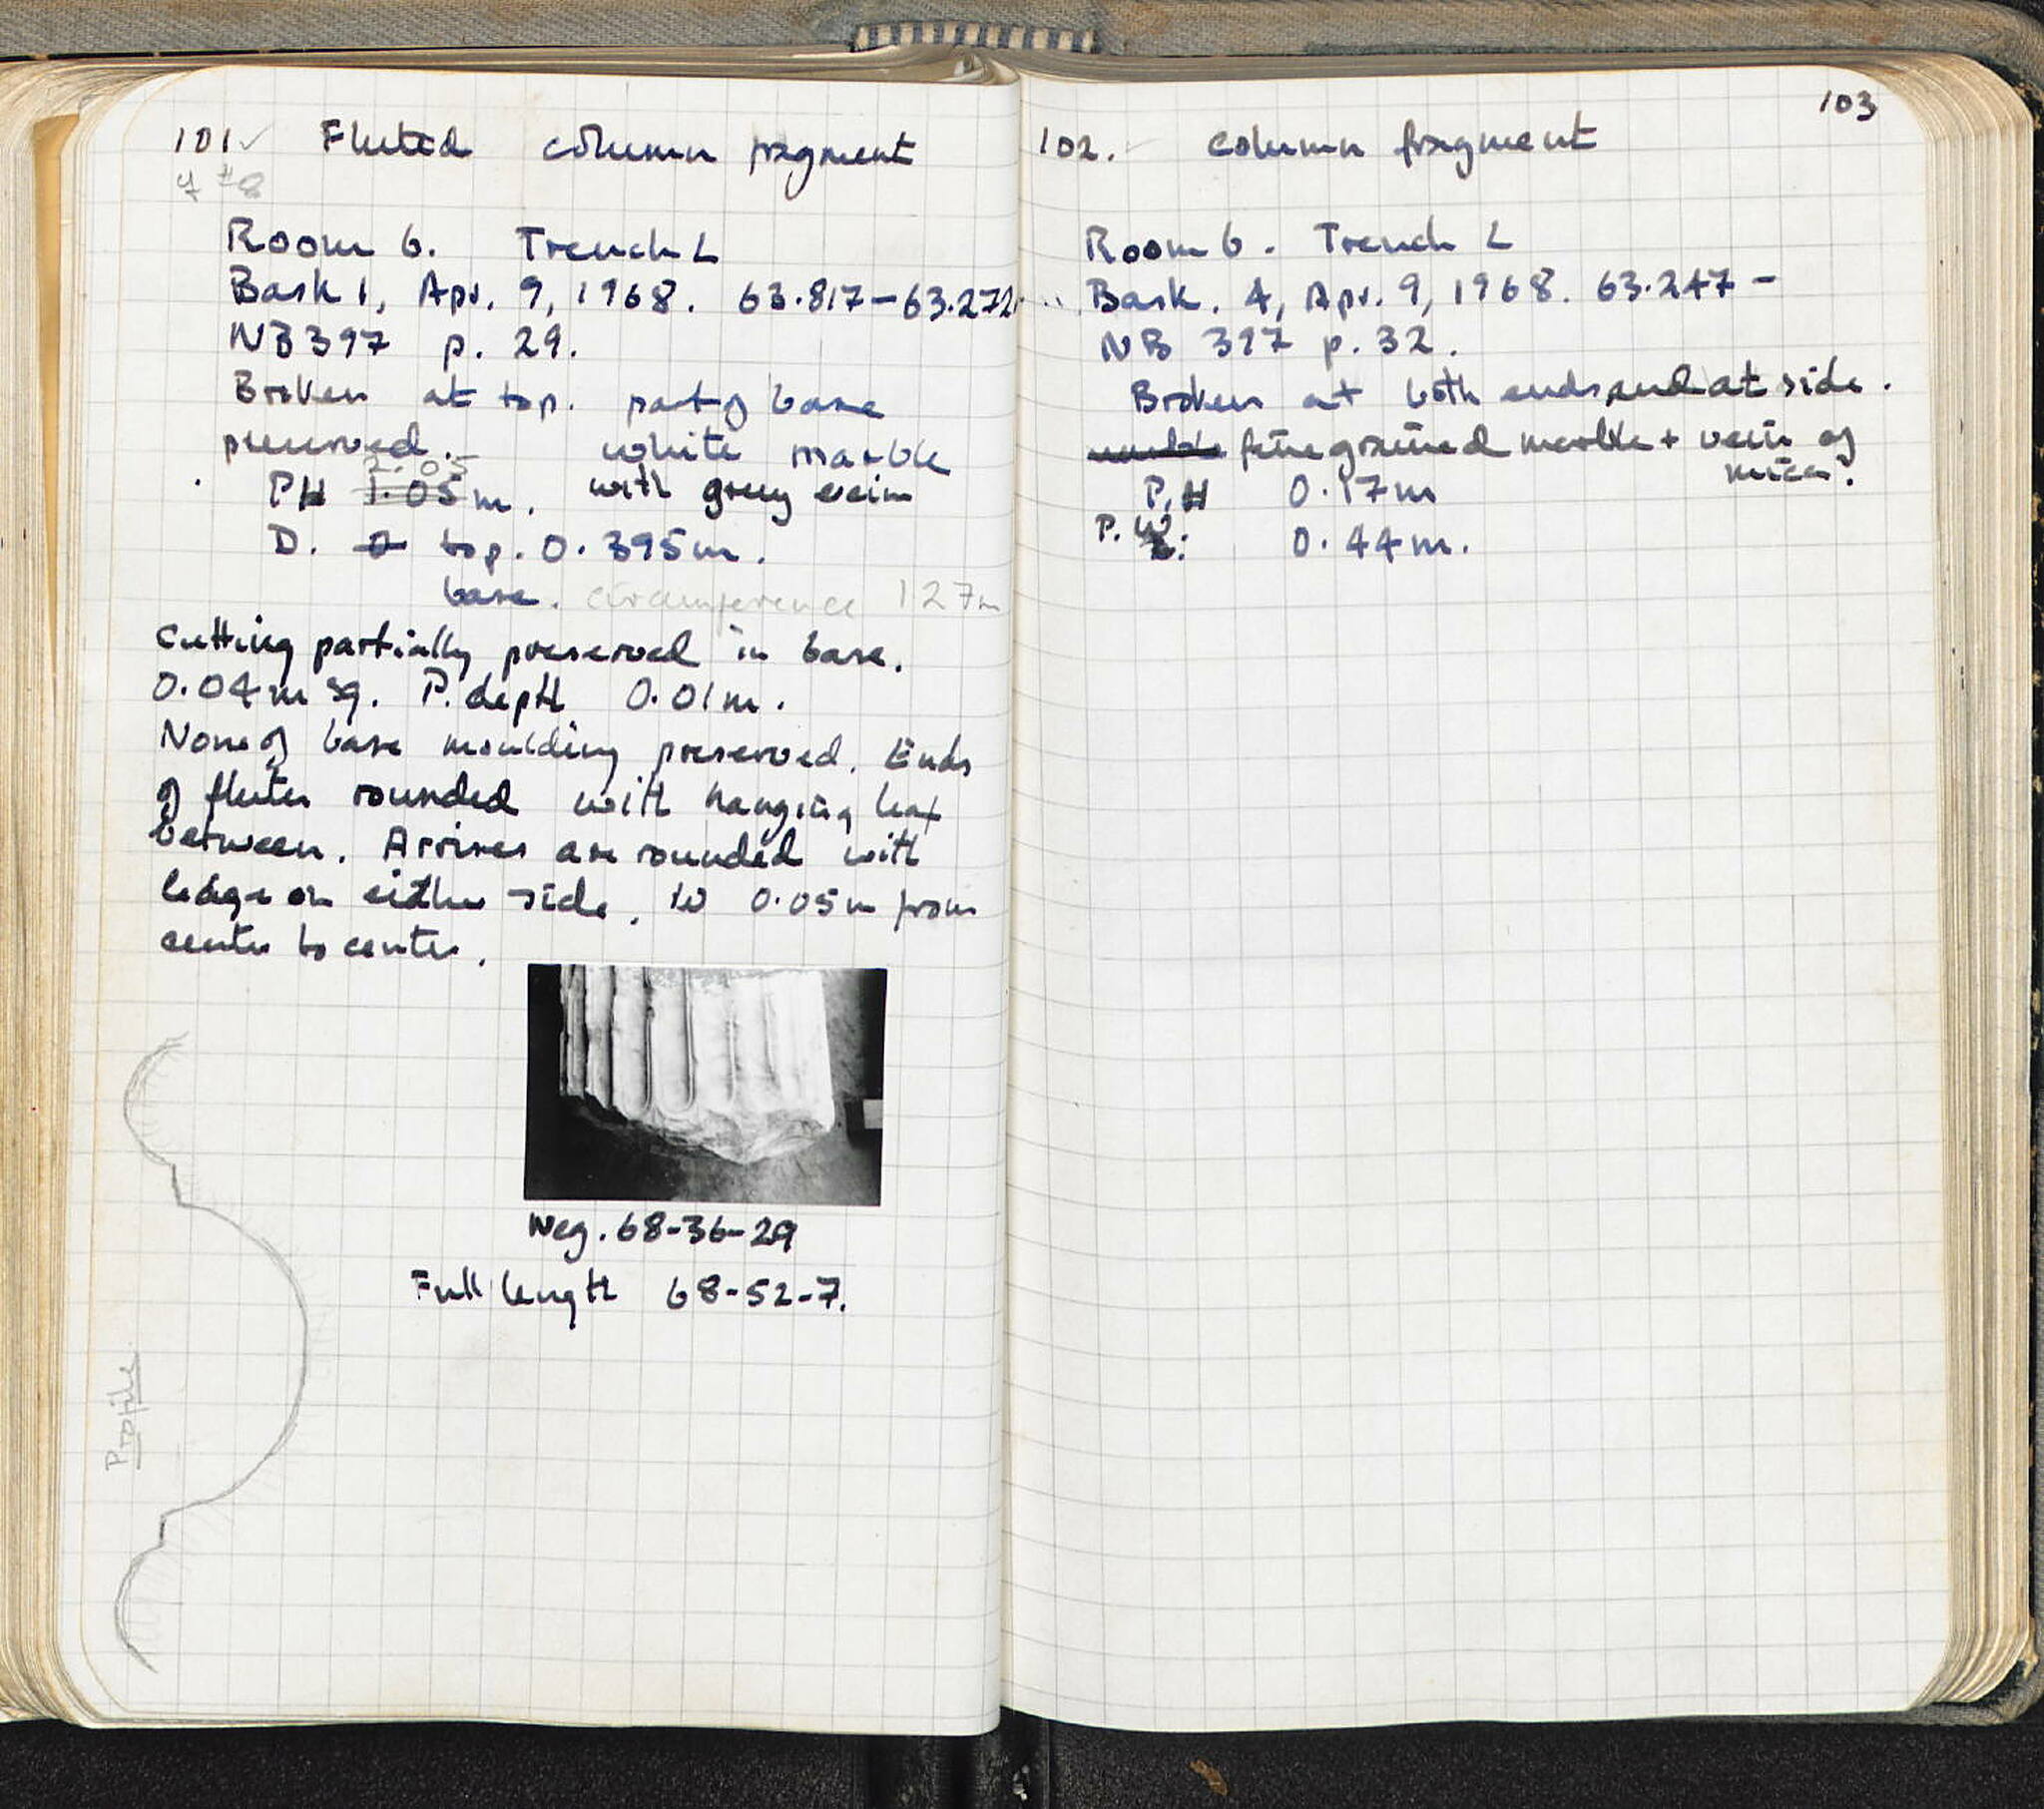 101. ✓ Fluted column fragment
#8
Room 6. Trench L
Bask 1, Apr. 9, 1968. 63.817-63.272
NB397 p. 29.
Broken at top. part of base
preserved. white marble
2.05
PH 1.05m. with grey vein
D. top. 0.395m.
base. circumference 1.27m
Cutting partially preserved in base.
0.04m sq. P. depth 0.01m.
None of base moulding preserved. Ends
of flutes rounded with hanging leaf
between. Arrises are rounded with
ledge on either side. W 0.05m from
center to center.
Neg. 68-36-29
Full length 68-52-7.
Profile
103
102. column fragment
Room 6. Trench L
Bask. 4, Apr. 9, 1968. 63.247 -
NB 397 p. 32.
Broken at both ends and at side.
marble fine grained marble + vein of
mica?
P.H 0.17m
P.W: 0.44m.